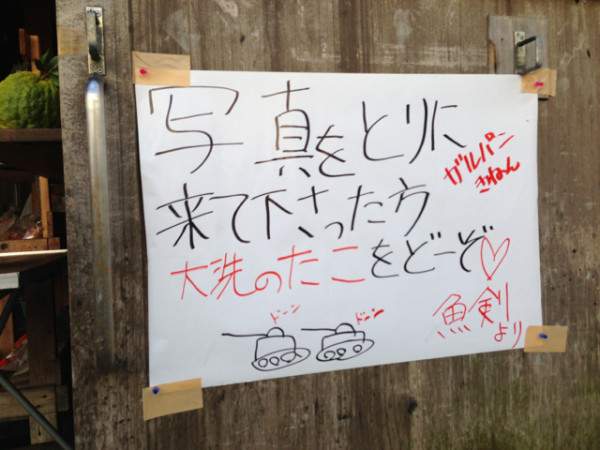 写真をとりに
来て下さった方
大洗のたこをどーぞ♡
ガルパン
さねん
ドーン
ドーン
魚剣
より